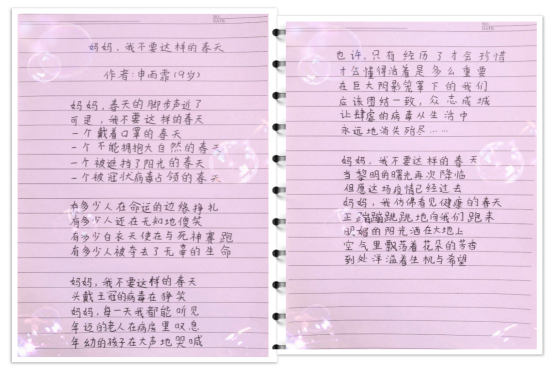 妈妈，我不要这样的春天
作者：申雨霏（9岁）
妈妈，春天的脚步声近了
可是，我不要这样的春天
一个戴着口罩的春天
一个不能拥抱大自然的春天
一个被遮挡了阳光的春天
一个被冠状病毒占领的春天
有多少人在命运的边缘挣扎
有多少人还在无知地傻笑
有多少白衣天使在与死神赛跑
有多少人被夺去了无辜的生命
妈妈，我不要这样的春天
头戴王冠的病毒在狰笑
妈妈，每一天我都能听见
年迈的老人在病房里叹息
年幼的孩子在大声地哭喊
也许，只有经历了才会珍惜
才会懂得活着是多么重要
在巨大阴影笼罩下的我们
应该团结一致，众志成城
让肆虐的病毒从生活中
永远地消失殆尽……
妈妈，我不要这样的春天
当黎明的曙光再次降临
但愿这场疫情已经过去
妈妈，我仿佛看见健康的春天
正蹦蹦跳跳地向我们跑来
明媚的阳光洒在大地上
空气里飘荡着花朵的芳香
到处洋溢着生机与希望